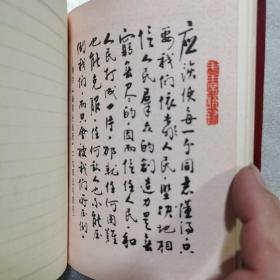 毛主席語錄
应該使每一个同志懂得,只
要我们依靠人民,坚决地相
信人民羣众的創造力是无
窮无尽的,因而信任人民,和
人民打成一片,那就任何困难
也能克服,任何敌人也不能压
倒我们,而只会被我们所压倒。